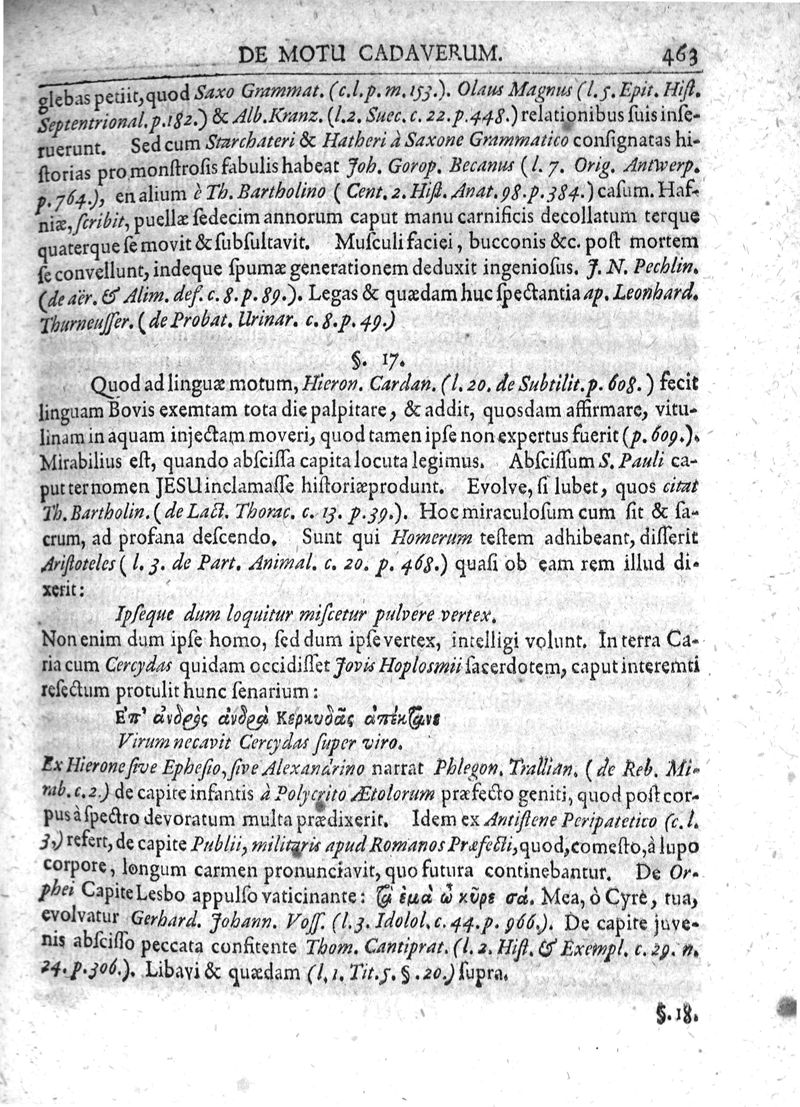 DE MOTU CADAVERUM. 463
glebas petiit, quod Saxo Grammat. (c.l.p.m.153.). Olaus Magnus (l. 5. Epit. Hiſt.
Septentrional.p.182.) & Alb.Kranz. (l.2. Suec. c. 22. p. 448.) relationibus ſuis inſe-
ruerunt. Sed cum Starchateri & Hatheri à Saxone Grammatico conſignatas hi-
ſtorias pro monſtroſis fabulis habeat Joh. Gorop. Becanus (l. 7. Orig. Antwerp.
p.764.), en alium è Th. Bartholino (Cent. 2. Hiſt. Anat. 98. p. 384.) caſum. Haf-
niæ, ſcribit, puellæ ſedecim annorum caput manu carnificis decollatum terque
quaterque ſe movit & ſubſultavit. Muſculi faciei, bucconis &c. poſt mortem
ſe convellunt, indeque ſpumæ generationem deduxit ingenioſus. J. N. Pechlin.
(de aër. & Alim. def. c. 8. p. 89.). Legas & quædam huc ſpectantia ap. Leonhard.
Thurneuſſer. (de Probat. Urinar. c. 8. p. 49.)
§. 17.
Quod ad linguæ motum, Hieron. Cardan. (l. 20. de Subtilit. p. 608.) fecit
linguam Bovis exemtam tota die palpitare, & addit, quosdam affirmare, vitu-
linam in aquam injectam moveri, quod tamen ipſe non expertus fuerit (p. 609.).
Mirabilius eſt, quando abſciſſa capita locuta legimus. Abſciſſum S. Pauli ca-
put ter nomen JESU inclamaſſe hiſtoriæ produnt. Evolve, ſi lubet, quos citat
Th. Bartholin. (de Lact. Thorac. c. 13. p. 39.). Hoc miraculoſum cum ſit & ſa-
crum, ad profana deſcendo. Sunt qui Homerum teſtem adhibeant, diſſerit
Ariſtoteles (l. 3. de Part. Animal. c. 20. p. 468.) quaſi ob eam rem illud di-
xerit:
Ipſeque dum loquitur miſcetur pulvere vertex.
Non enim dum ipſe homo, ſed dum ipſe vertex, intelligi volunt. In terra Ca-
ria cum Cercydas quidam occidiſſet Jovis Hoplosmii ſacerdotem, caput interemti
reſectum protulit hunc ſenarium:
Επ' ἀνδρὸς ἀνδρὰ Κερκυδᾶς ἀπέκτανε
Virum necavit Cercydas ſuper viro.
Ex Hierone ſive Epheſio, ſive Alexandrino narrat Phlegon. Trallian. (de Reb. Mi-
rab. c. 2.) de capite infantis à Polycrito Ætolorum præfecto geniti, quod poſt cor-
pus à ſpectro devoratum multa prædixerit. Idem ex Antiſtene Peripatetico (c. l.
3.) refert, de capite Publii, militaris apud Romanos Præfecti, quod, comeſto, à lupo
corpore, longum carmen pronunciavit, quo futura continebantur. De Or-
phei Capite Lesbo appulſo vaticinante: τὰ ἐμὰ ὦ κῦρε σά. Mea, ò Cyre, tua,
evolvatur Gerhard. Johann. Voſſ. (l. 3. Idolol. c. 44. p. 966.). De capite juve-
nis abſciſſo peccata confitente Thom. Cantiprat. (l. 2. Hiſt. & Exempl. c. 29. n.
24. p. 306.). Libavi & quædam (l. 1. Tit. 5. §. 20.) ſupra.
§. 18.